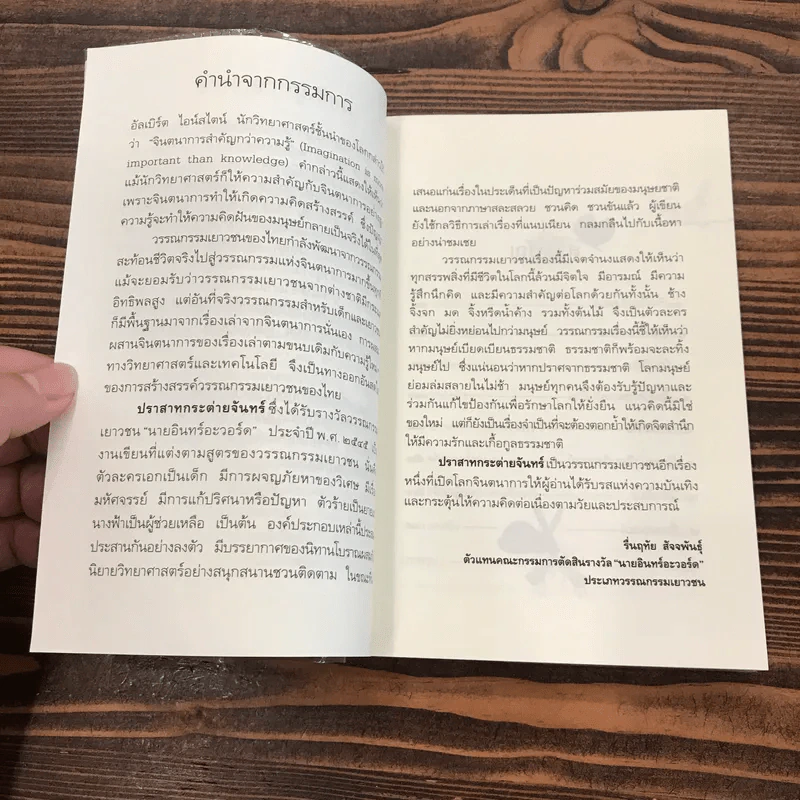 คำนำจากกรรมการ
อัลเบิร์ต ไอน์สไตน์ นักวิทยาศาสตร์ชั้นนำของโลกกล่าวไว้
ว่า "จินตนาการสำคัญกว่าความรู้" (Imagination is more
important than knowledge) คำกล่าวนี้แสดงให้เห็นว่า
แม้นักวิทยาศาสตร์ก็ให้ความสำคัญกับจินตนาการอย่างยิ่ง
เพราะจินตนาการทำให้เกิดความคิดสร้างสรรค์
ความรู้จะทำให้ความคิดฝันของมนุษย์กลายเป็นจริงได้ในที่สุด
วรรณกรรมเยาวชนของไทยกำลังพัฒนาจากวรรณกรรม
สะท้อนชีวิตจริงไปสู่วรรณกรรมแห่งจินตนาการมากขึ้น
แม้จะยอมรับว่าวรรณกรรมเยาวชนจากต่างชาติมี
อิทธิพลสูง แต่อันที่จริงวรรณกรรมสำหรับเด็กและเยาวชน
ก็มีพื้นฐานมาจากเรื่องเล่าจากจินตนาการนั่นเอง การ
ผสานจินตนาการของเรื่องเล่าตามขนบเดิมกับความรู้
ทางวิทยาศาสตร์และเทคโนโลยี จึงเป็นทางออก
ของการสร้างสรรค์วรรณกรรมเยาวชนของไทย
ปราสาทกระต่ายจันทร์ ซึ่งได้รับรางวัลวรรณกรรม
เยาวชน "นายอินทร์อะวอร์ด" ประจำปี พ.ศ. ๒๕๔๕
งานเขียนที่แต่งตามสูตรของวรรณกรรมเยาวชน นั่นคือ
ตัวละครเอกเป็นเด็ก มีการผจญภัยหาของวิเศษ มี
มหัศจรรย์ มีการแก้ปริศนาหรือปัญหา ตัวร้ายเป็น
นางฟ้าเป็นผู้ช่วยเหลือ เป็นต้น องค์ประกอบเหล่านี้
ประสานกันอย่างลงตัว มีบรรยากาศของนิทานโบราณ
นิยายวิทยาศาสตร์อย่างสนุกสนานชวนติดตาม ในขณะ
เสนอแก่นเรื่องในประเด็นที่เป็นปัญหาร่วมสมัยของมนุษยชาติ
และนอกจากภาษาสละสลวย ชวนคิด ชวนขันแล้ว ผู้เขียน
ยังใช้กลวิธีการเล่าเรื่องที่แนบเนียน กลมกลืนไปกับเนื้อหา
อย่างน่าชมเชย
วรรณกรรมเยาวชนเรื่องนี้มีเจตจำนงแสดงให้เห็นว่า
ทุกสรรพสิ่งที่มีชีวิตในโลกนี้ล้วนมีจิตใจ มีอารมณ์ มีความ
รู้สึกนึกคิด และมีความสำคัญต่อโลกด้วยกันทั้งนั้น ช้าง
จิ้งจก มด จิ้งหรีดน้ำค้าง รวมทั้งต้นไม้ จึงเป็นตัวละคร
สำคัญไม่ยิ่งหย่อนไปกว่ามนุษย์ วรรณกรรมเรื่องนี้ชี้ให้เห็นว่า
หากมนุษย์เบียดเบียนธรรมชาติ ธรรมชาติก็พร้อมจะละทิ้ง
มนุษย์ไป ซึ่งแน่นอนว่าหากปราศจากธรรมชาติ โลกมนุษย์
ย่อมล่มสลายในไม่ช้า มนุษย์ทุกคนจึงต้องรับรู้ปัญหาและ
ร่วมกันแก้ไขป้องกันเพื่อรักษาโลกให้ยั่งยืน แนวคิดนี้มิใช่
ของใหม่ แต่ก็ยังเป็นเรื่องจำเป็นที่จะต้องตอกย้ำให้เกิดจิตสำนึก
ให้มีความรักและเกื้อกูลธรรมชาติ
ปราสาทกระต่ายจันทร์ เป็นวรรณกรรมเยาวชนอีกเรื่อง
หนึ่งที่เปิดโลกจินตนาการให้ผู้อ่านได้รับรสแห่งความบันเทิง
และกระตุ้นให้ความคิดต่อเนื่องตามวัยและประสบการณ์
รื่นฤทัย สัจจพันธุ์
ตัวแทนคณะกรรมการตัดสินรางวัล "นายอินทร์อะวอร์ด"
ประเภทวรรณกรรมเยาวชน